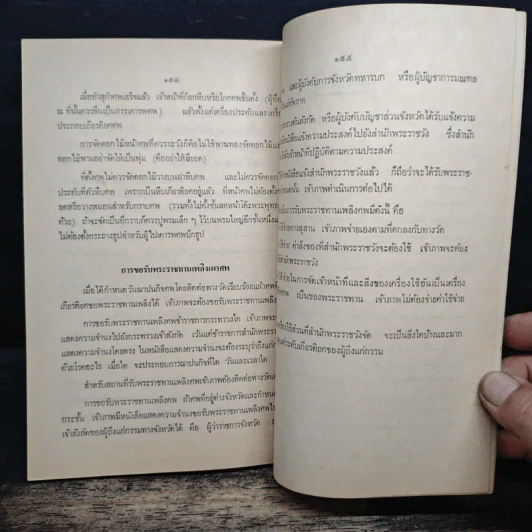 ๑๕๔
เมื่อทำสุกำศพเสร็จแล้ว เจ้าหน้าที่ก็ยกหีบหรือโกศศพขึ้นตั้ง
ณ ที่นั้นควรยืนเป็นการเคารพศพ ) แล้วทั้งแต่งเครื่องประดับและเครื่อง
ประกอบเกียรติยศศพ
การจัดดอกไม้หน้าศพที่ควรระวังก็คือไม่ใช้พานทองจัดดอกไม้และ
ดอกไม้พานอย่าจัดให้เป็นพุ่ม (คืออย่าให้มียอด)
ที่ตั้งศพไม่ควรจัดดอกไม้วางบนฝาหีบศพ และไม่ควรจัดดอก
ประดับที่ตัวหีบศพ เพราะเป็นหีบเกียรติยศอยู่แล้ว ที่หน้าศพไม่ต้องตั้ง
ลดหรือวางหมอนสำหรับกราบศพ
ด้วย) ถ้าจะจัดเป็นที่กราบก็ควรปูพรมเล็ก ๆ ไว้บนพรมใหญ่อีกชั้นหนึ่ง
ไม่ต้องตั้งกระถางธูปสำหรับผู้ไปเคารพศพปักธูป
การขอรับพระราชทานเพลิงเผาศพ
เมื่อได้กำหนดวันฌาปนกิจศพโดยติดต่อทางวัดเรียบร้อยแล้ว
เกียรติยศขอพระราชทานเพลิงได้ เจ้าภาพจะต้องขอรับพระราชทานเพลิง
การขอรับพระราชทานเพลิงศพข้าราชการกระทรวงใด
แสดงความจำนงไปยังกระทรวงเจ้าสังกัด เว้นแต่ข้าราชการสำนักพระราช
แสดงความจำนงโดยตรง ในหนังสือแสดงความจำนงจะต้องระบุว่าถึงแก่
ด้วยโรคอะไร เมื่อใด จะประกอบการฌาปนกิจที่ใด วันและเวลาใด
สำหรับสถานที่รับพระราชทานเพลิงศพเจ้าภาพต้องติดต่อทางวัด
การขอรับพระราชทานเพลิงศพ ถ้าศพที่อยู่ต่างจังหวัดและกำหนด
กระชั้น เจ้าภาพมีหนังสือแสดงความจำนงขอรับพระราชทานเพลิงศพ
เจ้าสังกัดของผู้ถึงแก่กรรมทางจังหวัดได้ คือ ผู้ว่าราชการจังหวัด
๑๕๕
และผู้บังคับการจังหวัดทหารบก หรือผู้บัญชาการมณฑล
ทางต้นสังกัด หรือผู้บังคับบัญชาส่วนจังหวัดได้รับแจ้งความ
หนังสือแจ้งความประสงค์ไปยังสำนักพระราชวัง ซึ่งสำนัก
เจ้าหน้าที่ปฏิบัติตามความประสงค์
หนังสือแจ้งสำนักพระราชวังแล้ว ก็ถือว่าจะได้รับพระราช-
เจ้าภาพดำเนินการต่อไปได้
การขอรับพระราชทานเพลิงศพมีดังนี้ คือ
เจ้าภาพจ่ายเองตามที่ตกลงกับทางวัด
ค่าสิ่งของที่สำนักพระราชวังจะต้องใช้ เจ้าภาพจะต้อง
สำนักพระราชวัง
ใช้จ่ายในการจัดเจ้าหน้าที่และสิ่งของเครื่องใช้อันเป็นเครื่อง
เป็นของพระราชทาน เจ้าภาพไม่ต้องจ่ายค่าใช้จ่าย
ใช้ส่วนที่สำนักพระราชวังจัด จะเป็นสิ่งใดบ้างและมาก
ระดับเกียรติยศของผู้ถึงแก่กรรม